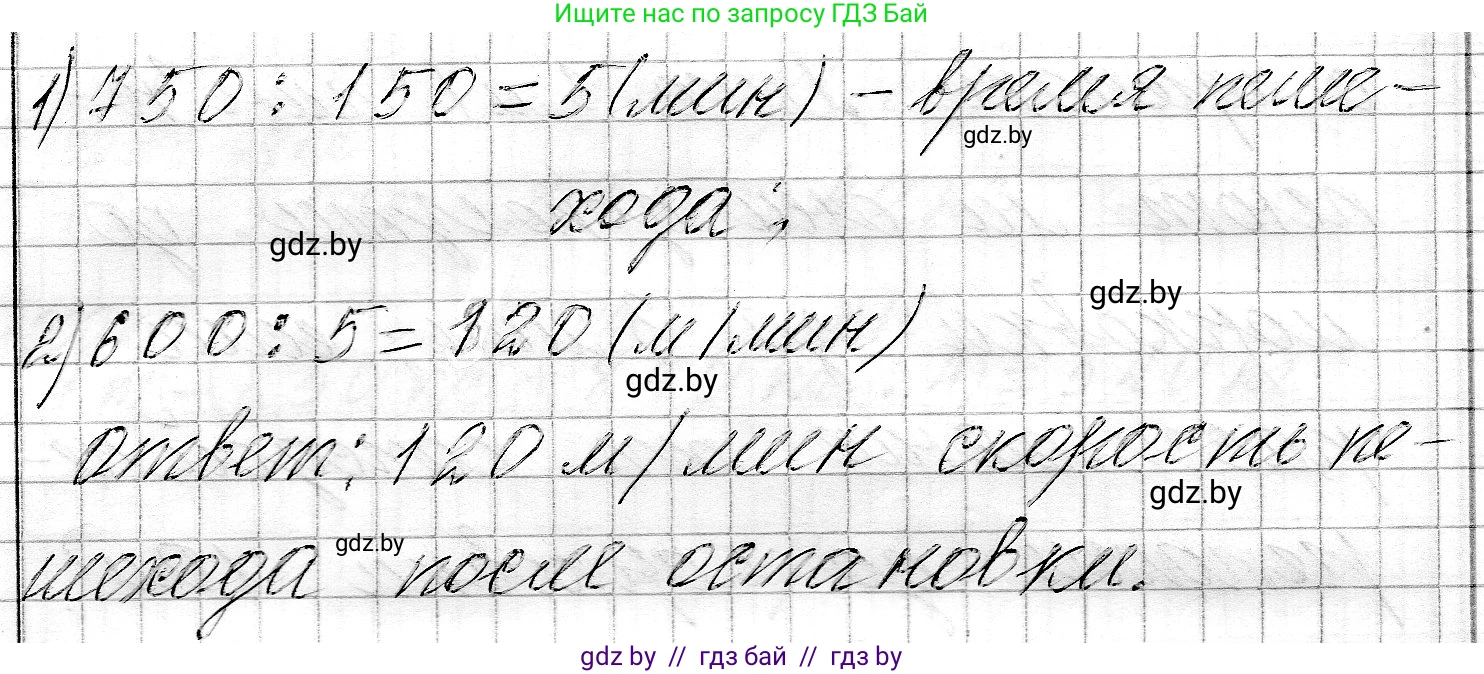 Ищите нас по запросу ГДЗ Бай
1) 750 : 150 = 5 (мин) – время пеше-
gdz.by
хода;
gdz.by
gdz.by
2) 600 : 5 = 120 (м/мин)
gdz.by
ответ: 120 м/мин скорость пе-
gdz.by
шехода после остановки.
gdz.by
gdz by // гдз бай // гдз by